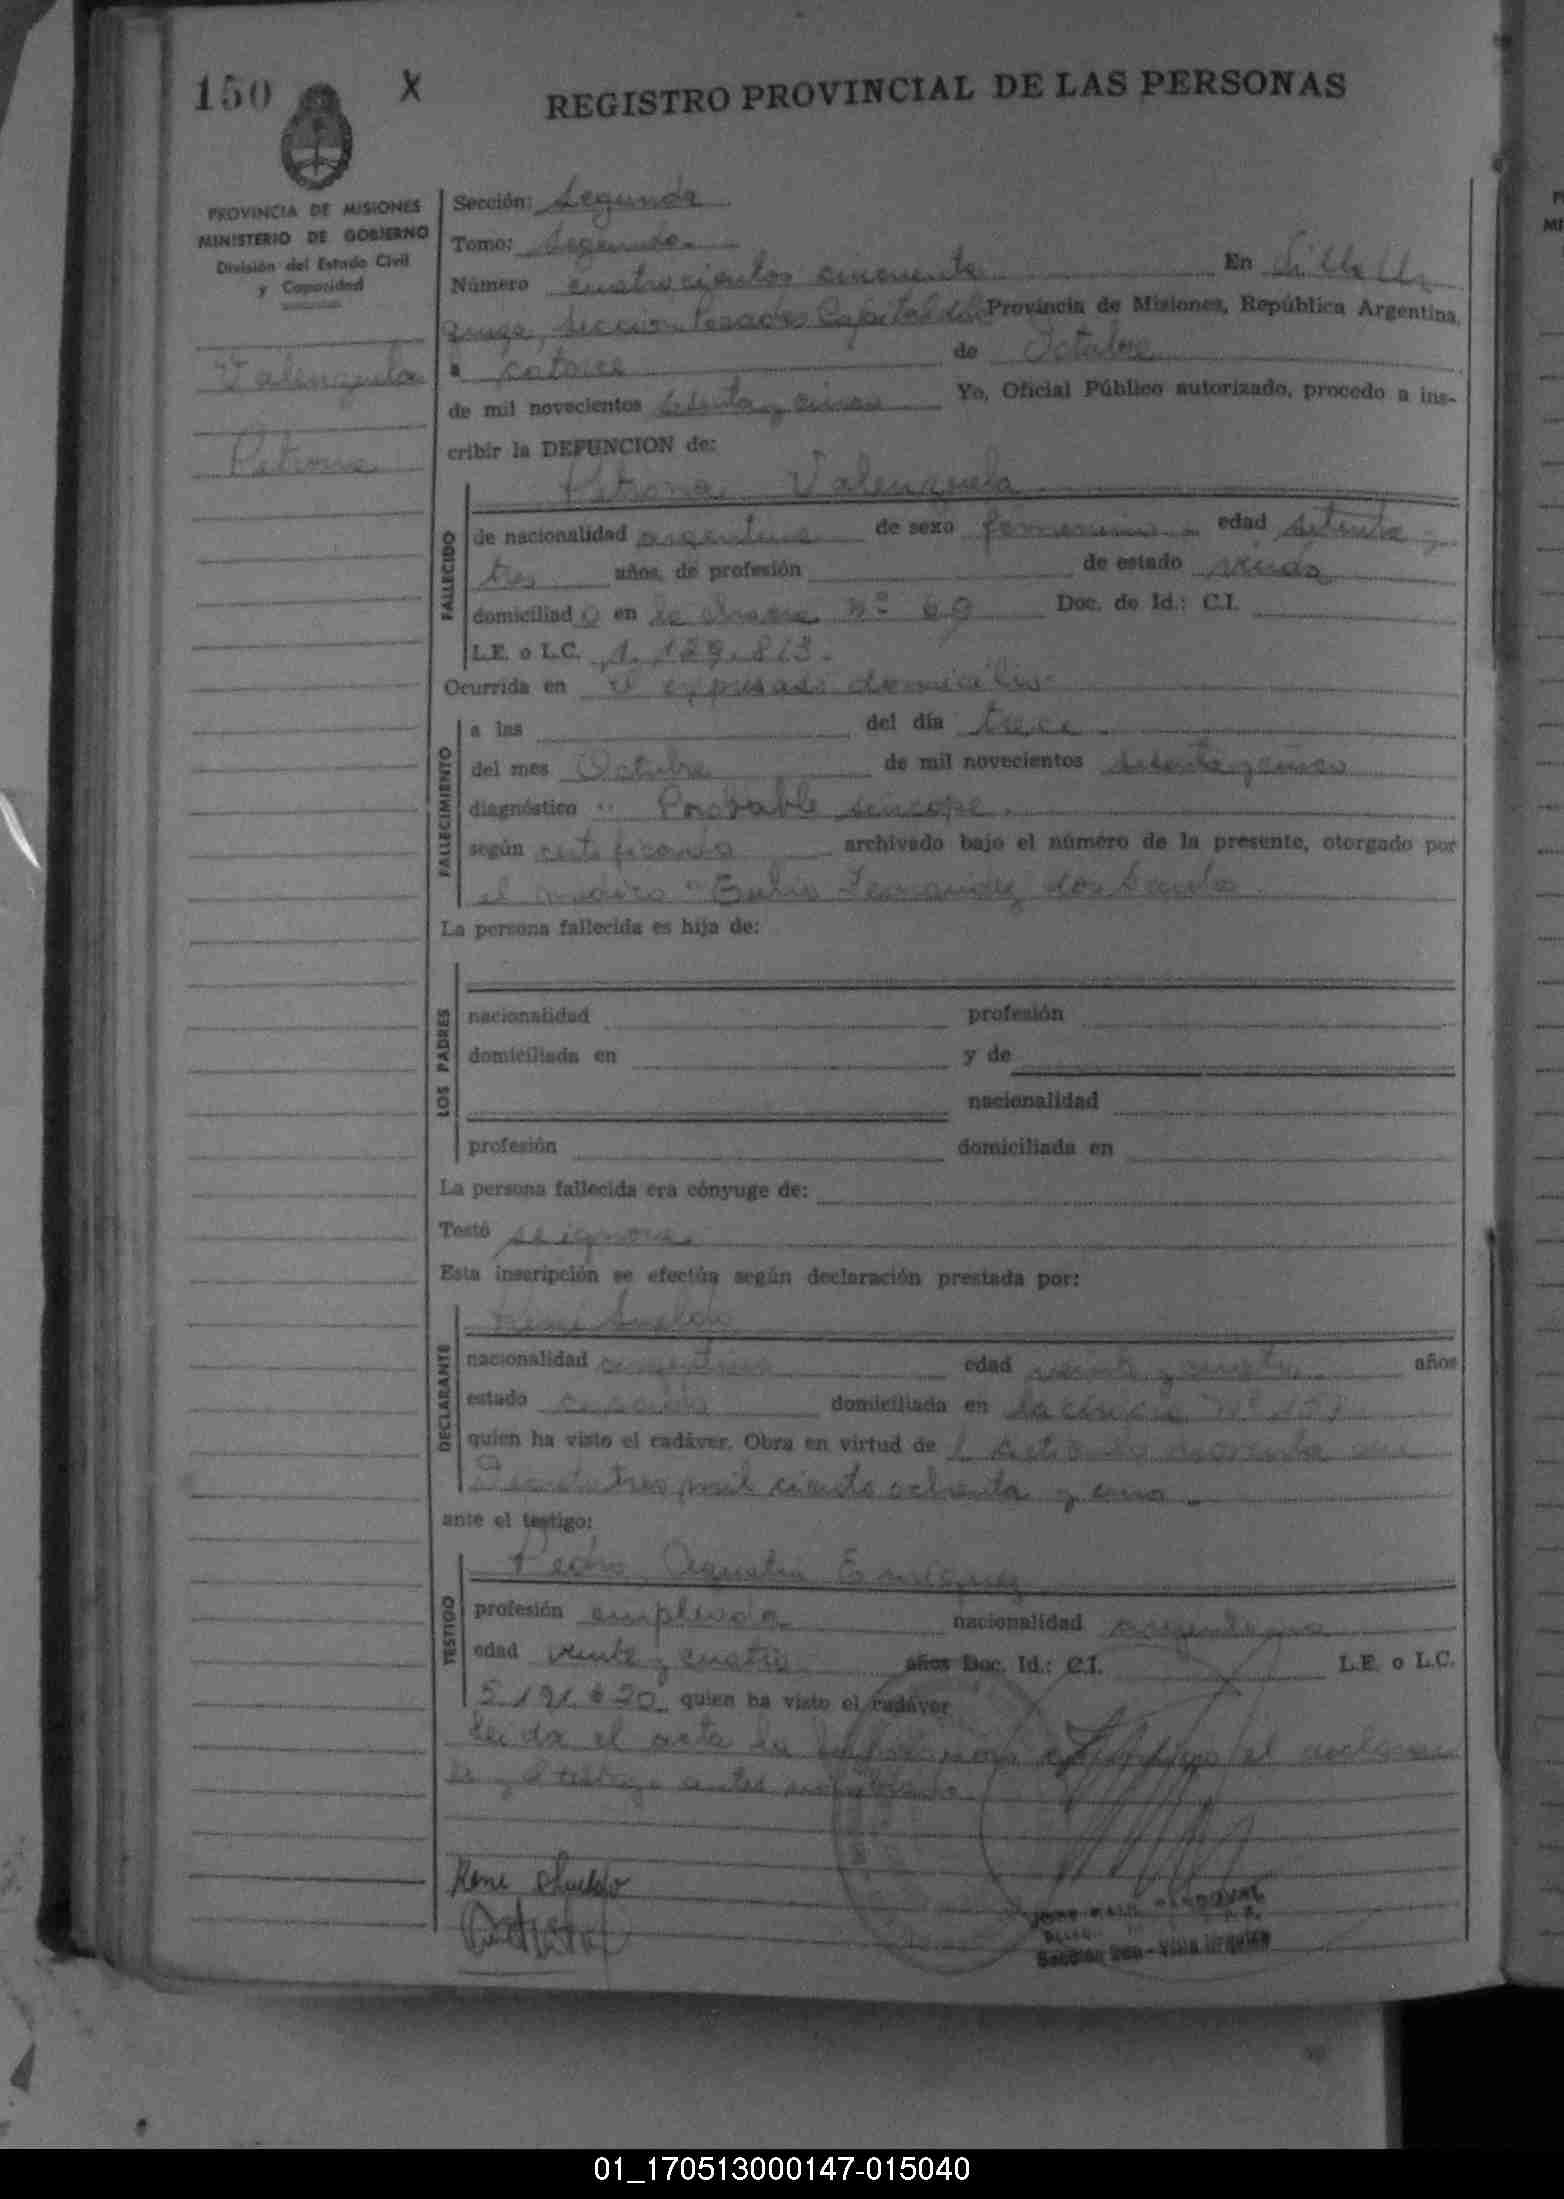 150 X
REGISTRO PROVINCIAL DE LAS PERSONAS
PROVINCIA DE MISIONES
MINISTERIO DE GOBIERNO
División del Estado Civil
y Capacidad
Valenzuela
Petrona
Sección: Segunda
Tomo: Segundo
Número cuatrocientos cincuenta En Villa Ur
quiza, Sección Posadas Capital de la Provincia de Misiones, República Argentina,
a catorce de Octubre
de mil novecientos setenta y cinco Yo, Oficial Público autorizado, procedo a ins-
cribir la DEFUNCION de:
Petrona Valenzuela
FALLECIDO
de nacionalidad argentina de sexo femenino edad setenta y
tres años, de profesión de estado viuda
domiciliad o en la chacra Nº 69 Doc. de Id.: C.I.
L.E. o L.C. 1.129.813.
Ocurrida en el expresado domicilio
FALLECIMIENTO
a las del día trece
del mes Octubre de mil novecientos setenta y cinco
diagnóstico Probable sincope
según certificado archivado bajo el número de la presente, otorgado por
el medico Fernandez dos Santos
La persona fallecida es hija de:
LOS PADRES
nacionalidad profesión
domiciliada en y de
nacionalidad
profesión domiciliada en
La persona fallecida era cónyuge de:
Testó se ignora
Esta inscripción se efectúa según declaración prestada por:
DECLARANTE
René Sueldo
nacionalidad argentina edad veinte y cuatro años
estado casado domiciliada en la chacra Nº
quien ha visto el cadáver. Obra en virtud de
tres mil ciento ochenta y uno
ante el testigo:
TESTIGO
Pedro Agustin Enriquez
profesión empleado nacionalidad argentino
edad veinte y cuatro años Doc. Id.: C.I. L.E. o L.C.
quien ha visto el cadáver
Leida el acta la el declaran
te y el testigo
René Sueldo
Sección 2da - Villa Urquiza
01_170513000147-015040